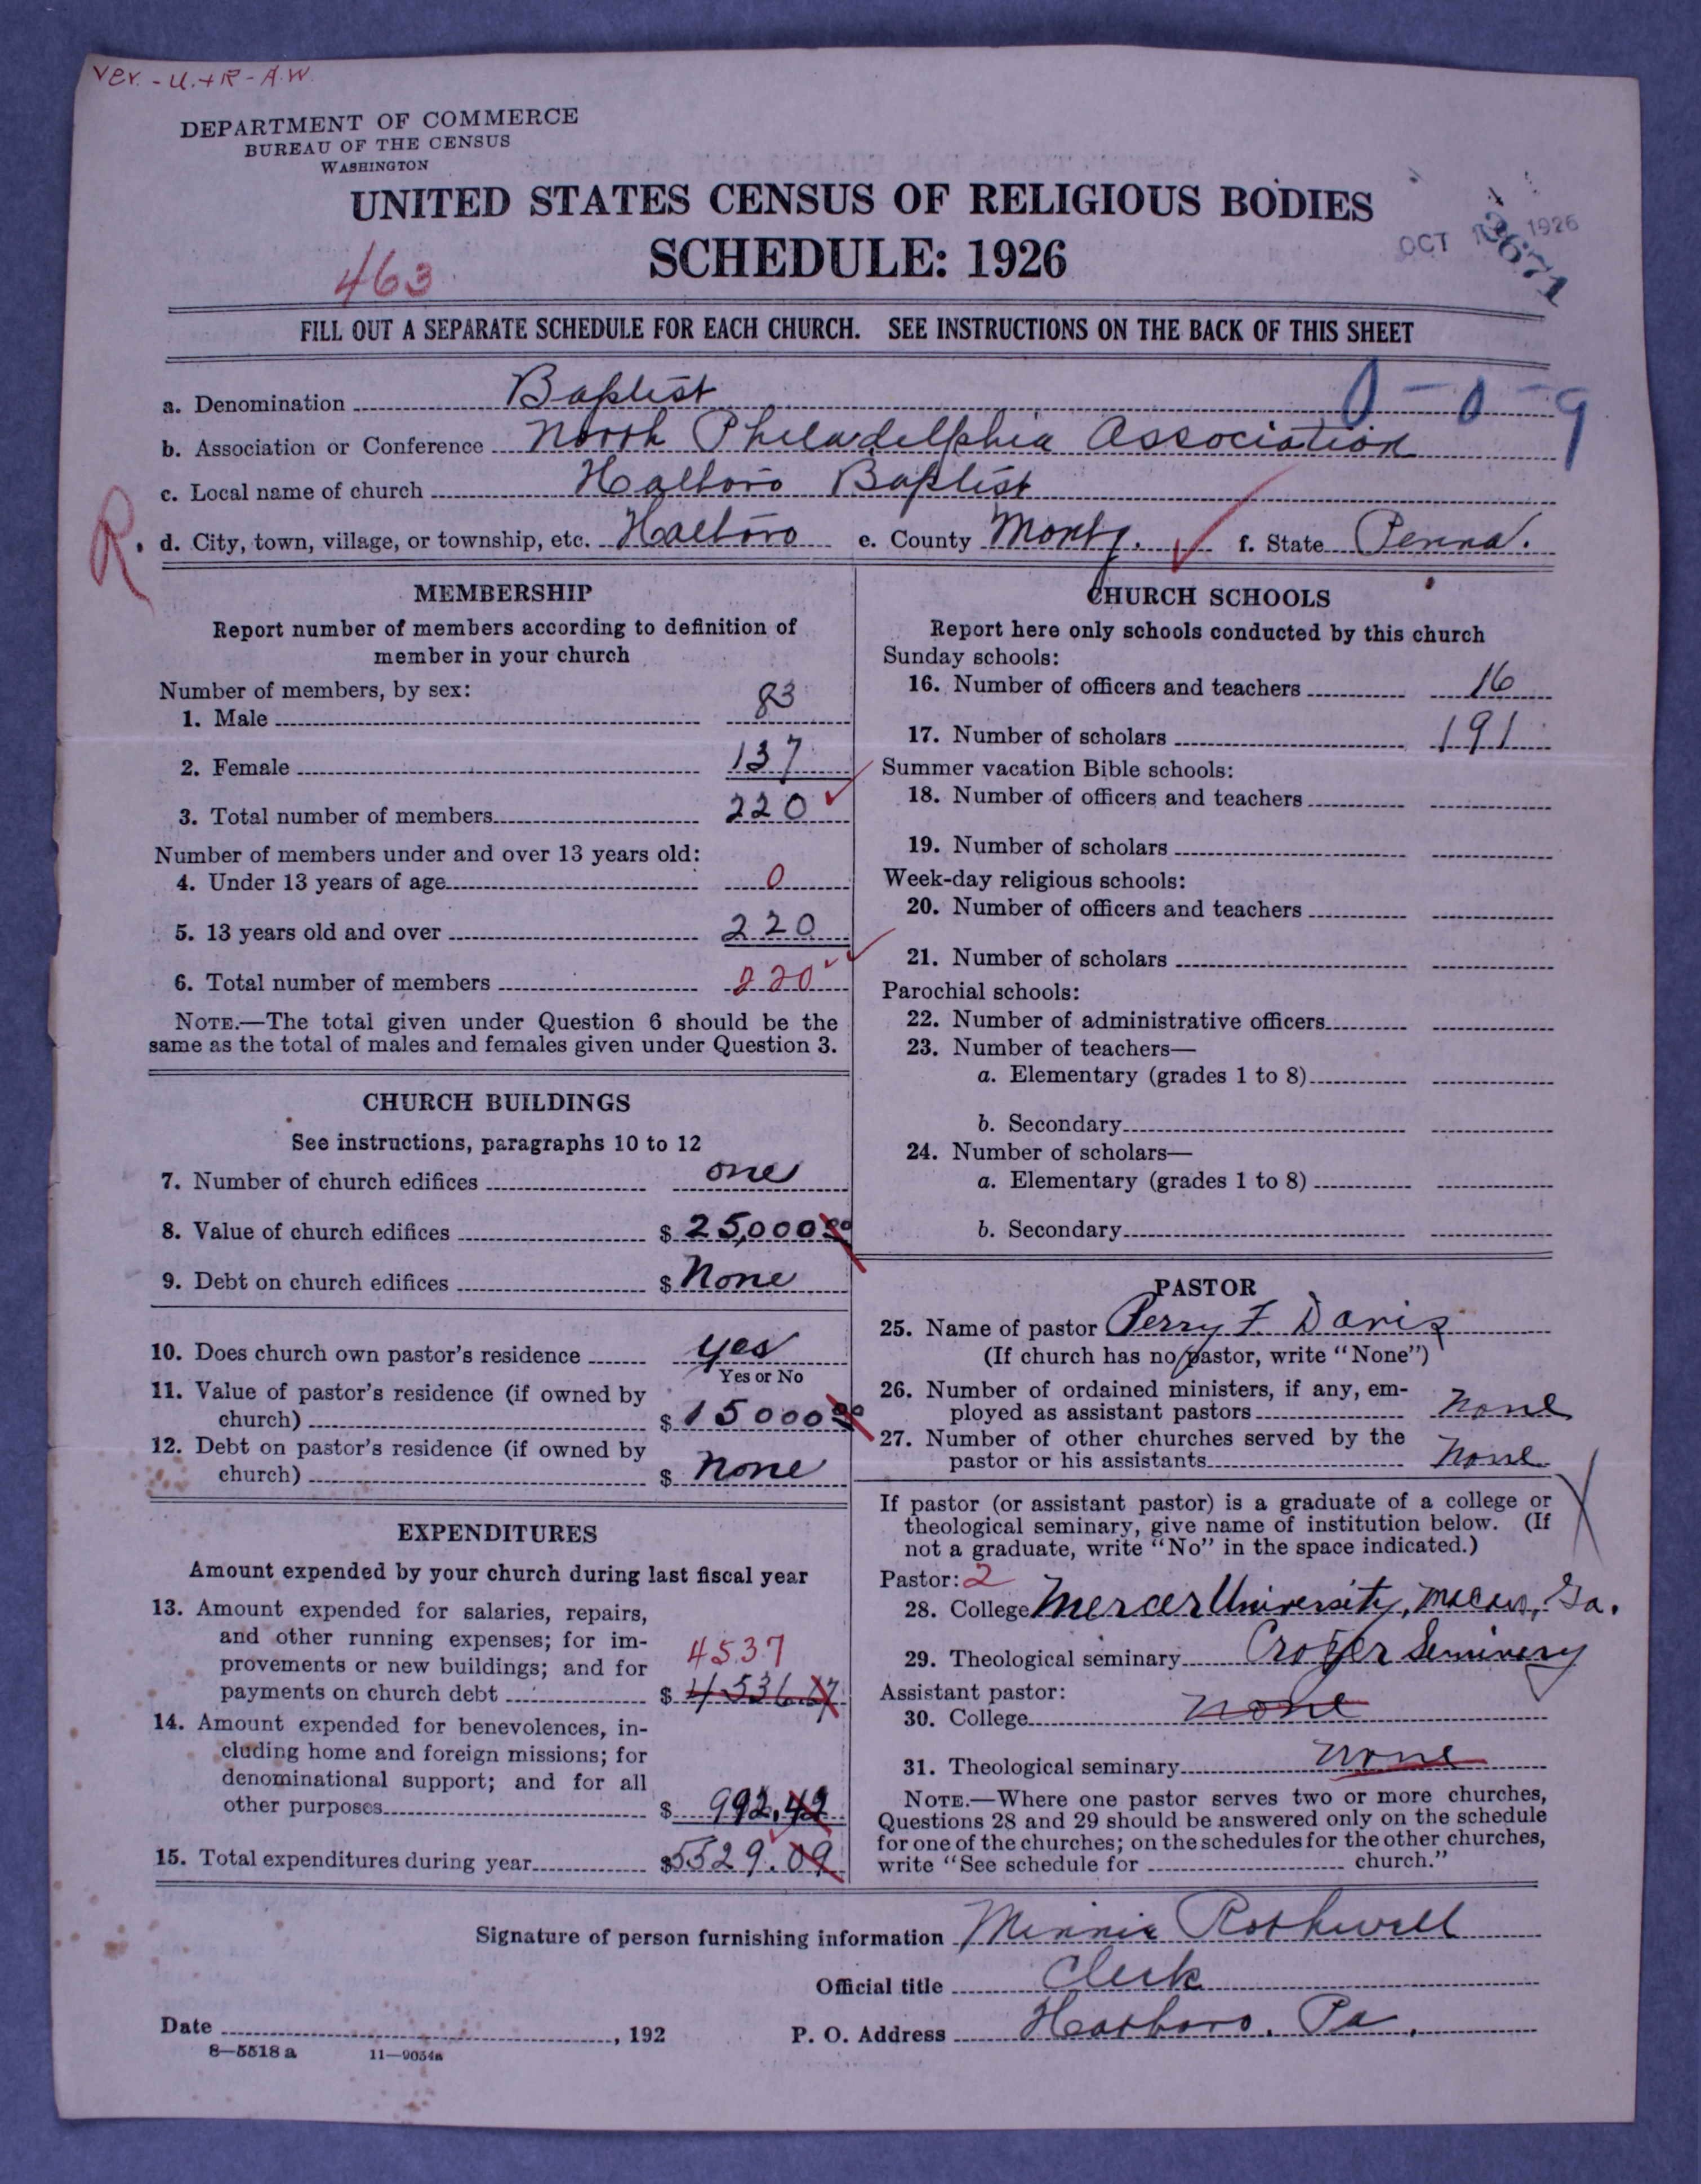 Ver. - U. + R - A.W.
DEPARTMENT OF COMMERCE
BUREAU OF THE CENSUS
WASHINGTON
UNITED STATES CENSUS OF RELIGIOUS BODIES
SCHEDULE: 1926
OCT 1926
3671
463
FILL OUT A SEPARATE SCHEDULE FOR EACH CHURCH. SEE INSTRUCTIONS ON THE BACK OF THIS SHEET
a. Denomination Baptist 0-0-9
b. Association or Conference North Philadelphia Association
c. Local name of church Hatboro Baptist
R. d. City, town, village, or township, etc. Hatboro e. County Montg. f. State Penna.
MEMBERSHIP
Report number of members according to definition of
member in your church
Number of members, by sex:
1. Male 83
2. Female 137
3. Total number of members 220
Number of members under and over 13 years old:
4. Under 13 years of age 0
5. 13 years old and over 220
6. Total number of members 220
NOTE.—The total given under Question 6 should be the
same as the total of males and females given under Question 3.
CHURCH BUILDINGS
See instructions, paragraphs 10 to 12
7. Number of church edifices one
8. Value of church edifices $ 25,000.00
9. Debt on church edifices $ None
10. Does church own pastor's residence yes
Yes or No
11. Value of pastor's residence (if owned by
church) $ 15000.00
12. Debt on pastor's residence (if owned by
church) $ None
EXPENDITURES
Amount expended by your church during last fiscal year
13. Amount expended for salaries, repairs,
and other running expenses; for im-
provements or new buildings; and for 4537
payments on church debt $ 4536.67
14. Amount expended for benevolences, in-
cluding home and foreign missions; for
denominational support; and for all
other purposes $ 992.42
15. Total expenditures during year $5529.09
CHURCH SCHOOLS
Report here only schools conducted by this church
Sunday schools:
16. Number of officers and teachers 16
17. Number of scholars 191
Summer vacation Bible schools:
18. Number of officers and teachers
19. Number of scholars
Week-day religious schools:
20. Number of officers and teachers
21. Number of scholars
Parochial schools:
22. Number of administrative officers
23. Number of teachers—
a. Elementary (grades 1 to 8)
b. Secondary
24. Number of scholars—
a. Elementary (grades 1 to 8)
b. Secondary
PASTOR
25. Name of pastor Perry F. Davis
(If church has no pastor, write "None")
26. Number of ordained ministers, if any, em-
ployed as assistant pastors none
27. Number of other churches served by the
pastor or his assistants none
If pastor (or assistant pastor) is a graduate of a college or
theological seminary, give name of institution below. (If
not a graduate, write "No" in the space indicated.)
Pastor: 2
28. College Mercer University, Macon, Ga.
29. Theological seminary Crozer Seminery
Assistant pastor:
30. College none
31. Theological seminary none
NOTE.—Where one pastor serves two or more churches,
Questions 28 and 29 should be answered only on the schedule
for one of the churches; on the schedules for the other churches,
write "See schedule for church."
Signature of person furnishing information Minnie Rothwell
Official title Clerk
Date , 192 P. O. Address Hatboro, Pa.
8—5518 a 11—9034a